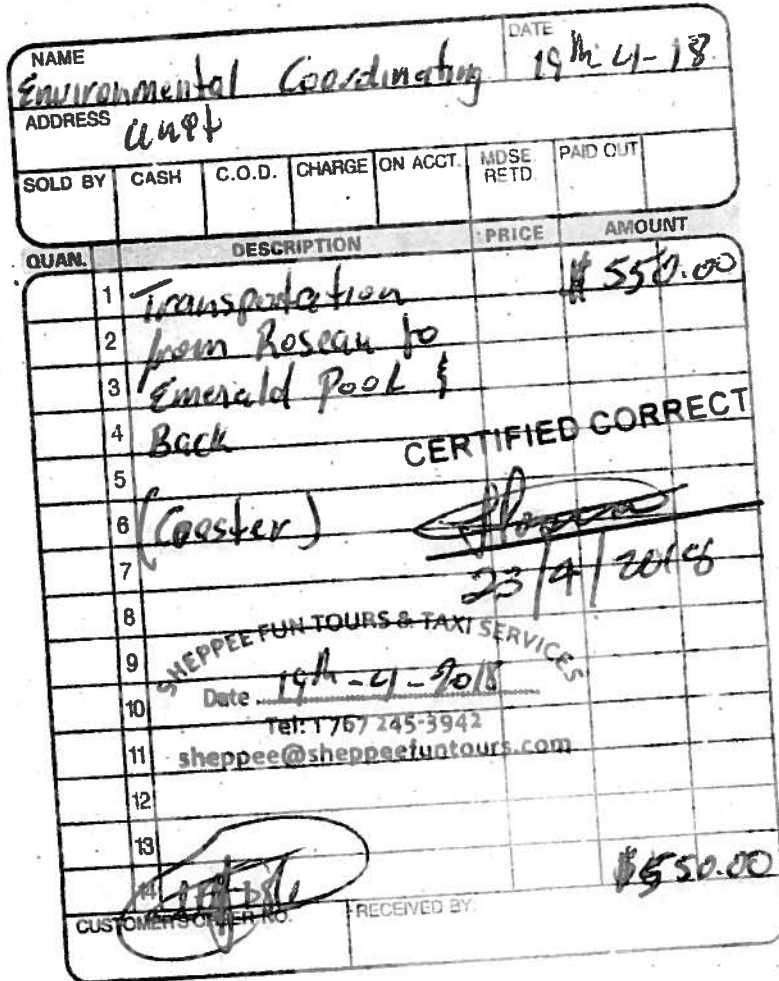 NAME
DATE
Environmental Coordinating
19th-4-18
ADDRESS
Unit
SOLD BY CASH C.O.D. CHARGE ON ACCT. MDSE. RETD. PAID OUT
QUAN. DESCRIPTION PRICE AMOUNT
1 Transportation $550.00
2 from Roseau to
3 Emerald Pool &
4 Back
CERTIFIED CORRECT
5
6 (Coaster)
7 23/4/2018
8
SHEPPEE FUN TOURS & TAXI SERVICES
9
Date 19th-4-2018
10
Tel: 1 767 245-3942
11 sheppee@sheppeefuntours.com
12
13
14 $550.00
CUSTOMER'S ORDER NO. RECEIVED BY: